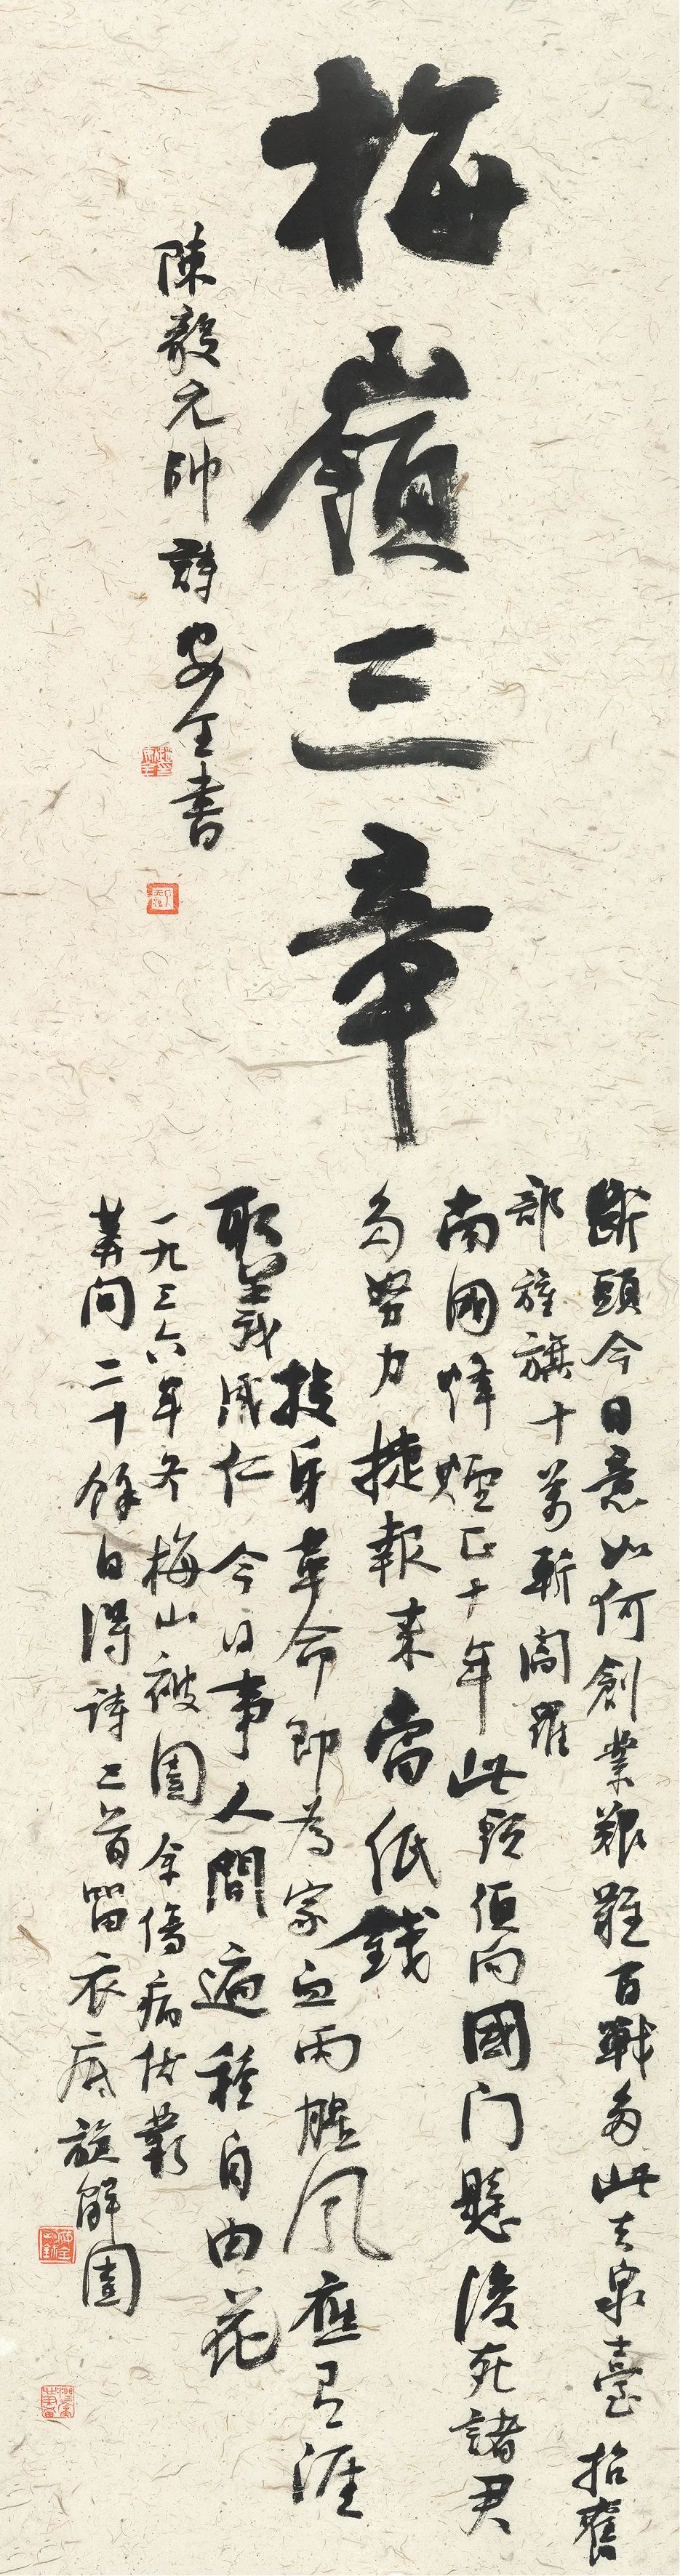 梅嶺三章
陳毅元帥詩安全書
斷頭今日意如何創業艱難百戰多此去泉臺招舊
部旌旗十萬斬閻羅
南國烽煙正十年此頭須向國门懸後死諸君
多努力捷報来當紙錢
投身革命即為家血雨腥风應有涯
取義成仁今日事人間遍種自由花
一九三六年冬梅山被圍余傷病伏叢
莽间二十餘日得詩三首留衣底旋解圍